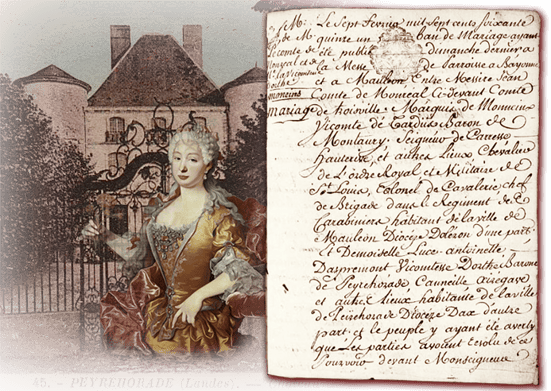 Le Sept fevrier mil Sept cents Soixante
quinze un ban de Mariage ayant
été publié dimanche dernier a
la Messe de Parroisse a Bayonne
et a Mauléon Entre Messire Jean
Comte de Monréal Ci-devant Comte
de troisville Marquis de Moneins
Vicomte de Tardets Baron de
Montaury, Seigneur de Carresse
hauterive, et autres Lieux, Chevalier
de L'ordre Royal et Militaire de
St Louis, Colonel de Cavalerie, chef
de Brigade dans le Regiment des
Carabiniers habitant de la ville de
Mauléon Diocèze Doléron d'une part
et Demoiselle Luce antoinette
Daspremont Vicomtesse Dorthe Baronne
de Peyrehorade Cauneille
et autres lieux habitante de la ville
de Peirehorade Diocèze Dax d'autre
part, et le peuple y ayant été averty
que Les parties avoient
pourvoir devant Monseigneur
Mr
Le comte de
Monréal et
moneins
mariage
45. - PEYREHORADE (Landes). -